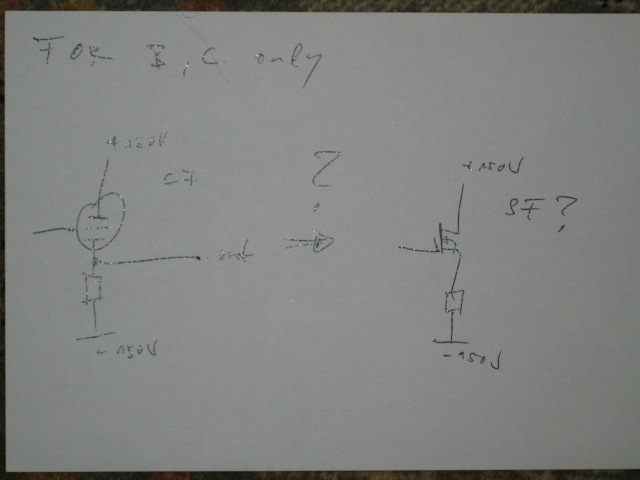 FOR B, C only
+150V
+150V
CF
?
SF?
out
-150V
-150V